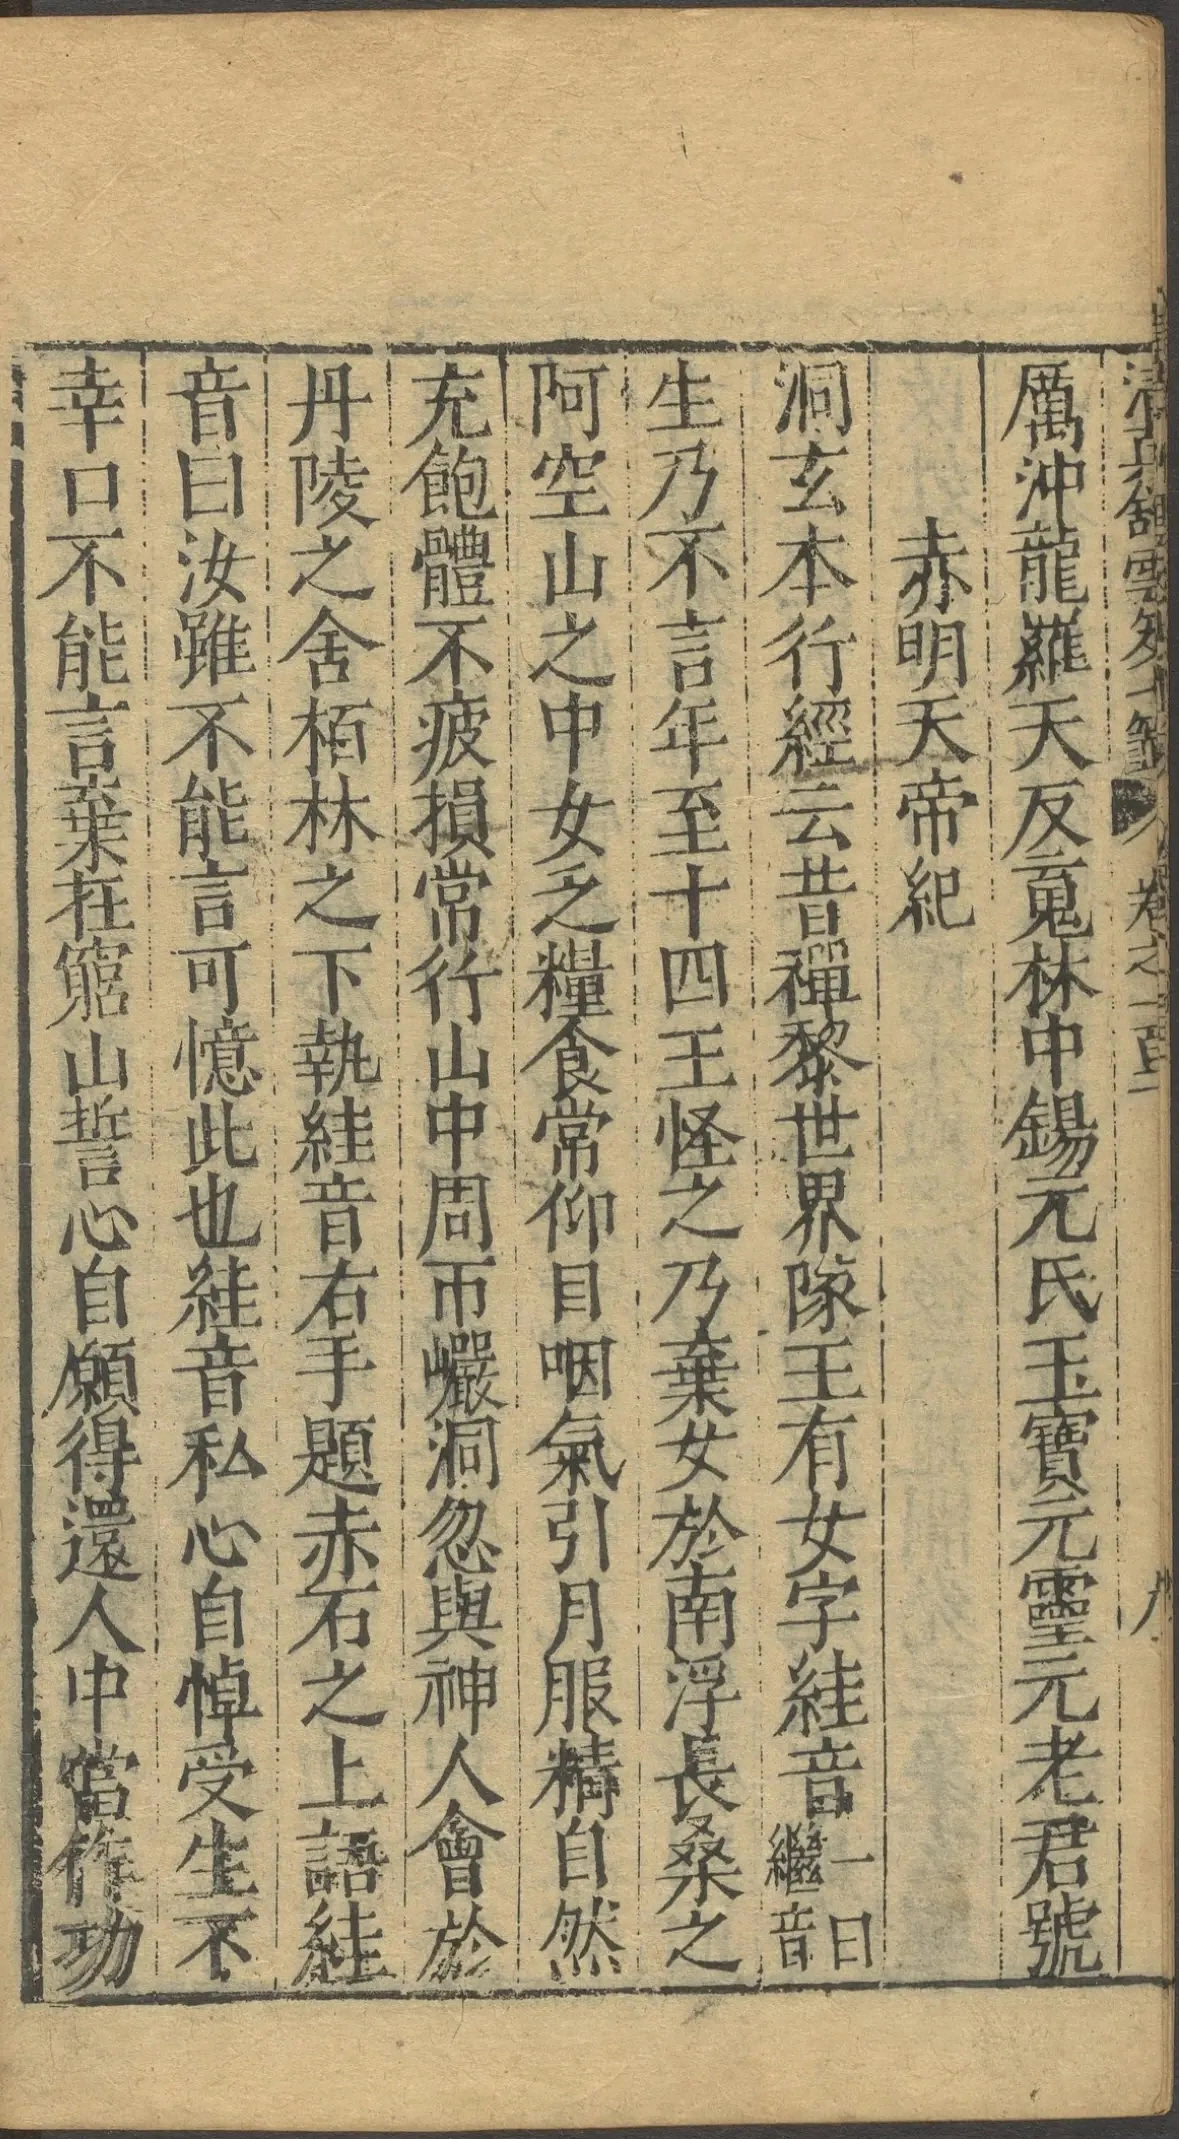 清真館雲笈七籤 卷之一百二
厲沖龍羅天反䰟林中錫元氏玉寶元靈元老君號
赤明天帝紀
洞玄本行經云昔禪黎世界隊王有女字絓音一曰繼音
生乃不言年至十四王怪之乃棄女於南浮長桑之
阿空山之中女乏糧食常仰日咽氣引月服精自然
充飽體不疲損常行山中周帀巖洞忽與神人會於
丹陵之舍栢林之下執絓音右手題赤石之上語絓
音曰汝雖不能言可憶此也絓音私心自悼受生不
幸口不能言棄在窮山誓心自願得還人中當作功